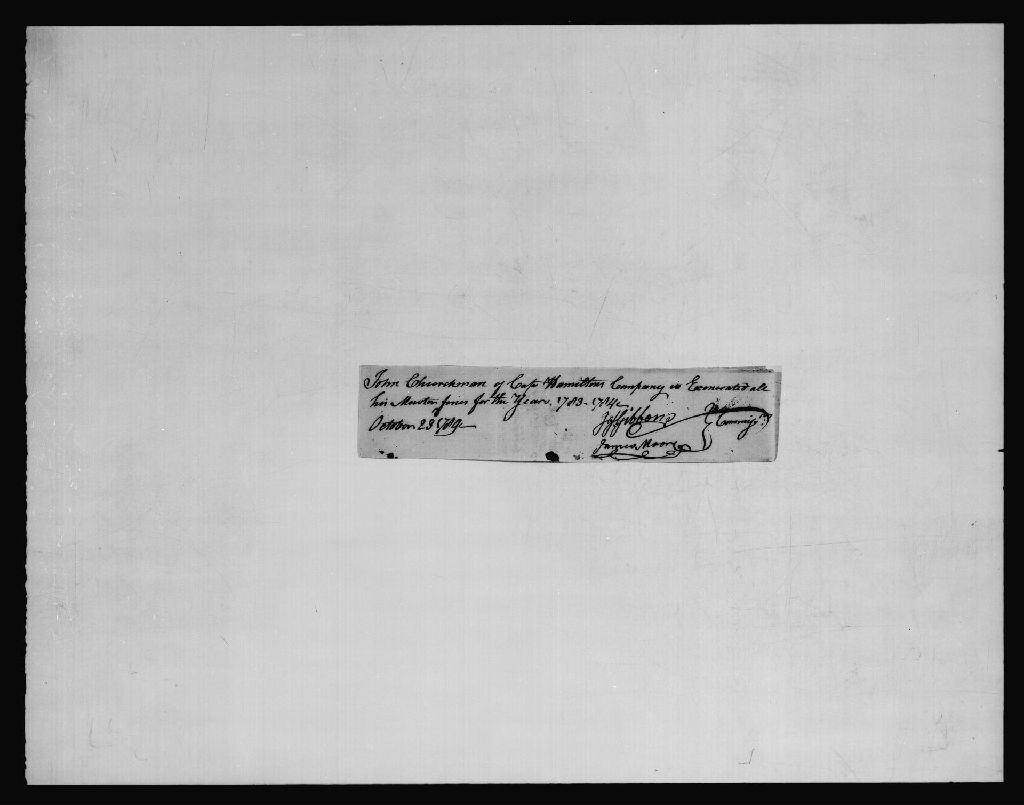 John Churchman of Capt Hamiltons Company is Exonerated all
his Muster fines for the Years 1783-1784
October 23 1789
Gibbons
James Moore